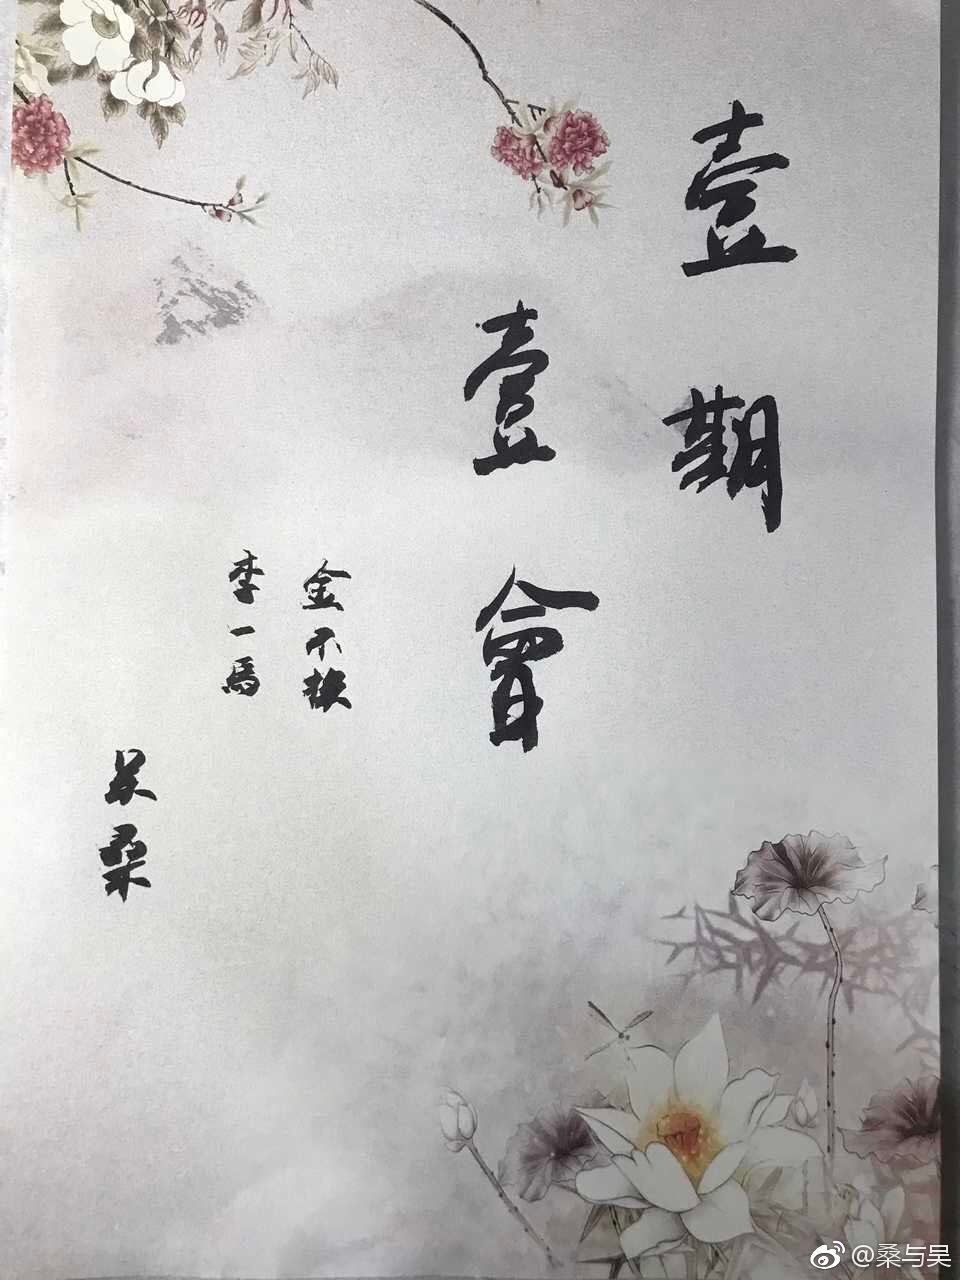 壹期
壹會
金不换
李一馬
吴桑
@桑与吴